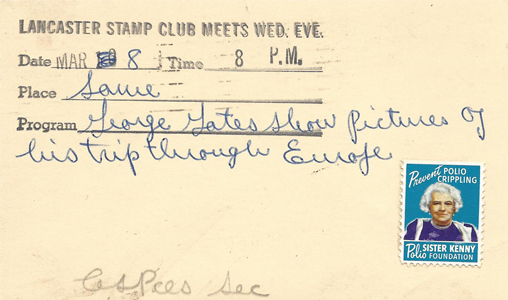 LANCASTER STAMP CLUB MEETS WED. EVE.
Date MAR 8 Time 8 P.M.
Place Same
Program George Gates show pictures of
his trip through Europe
Prevent POLIO
CRIPPLING
SISTER KENNY
Polio FOUNDATION
Sec